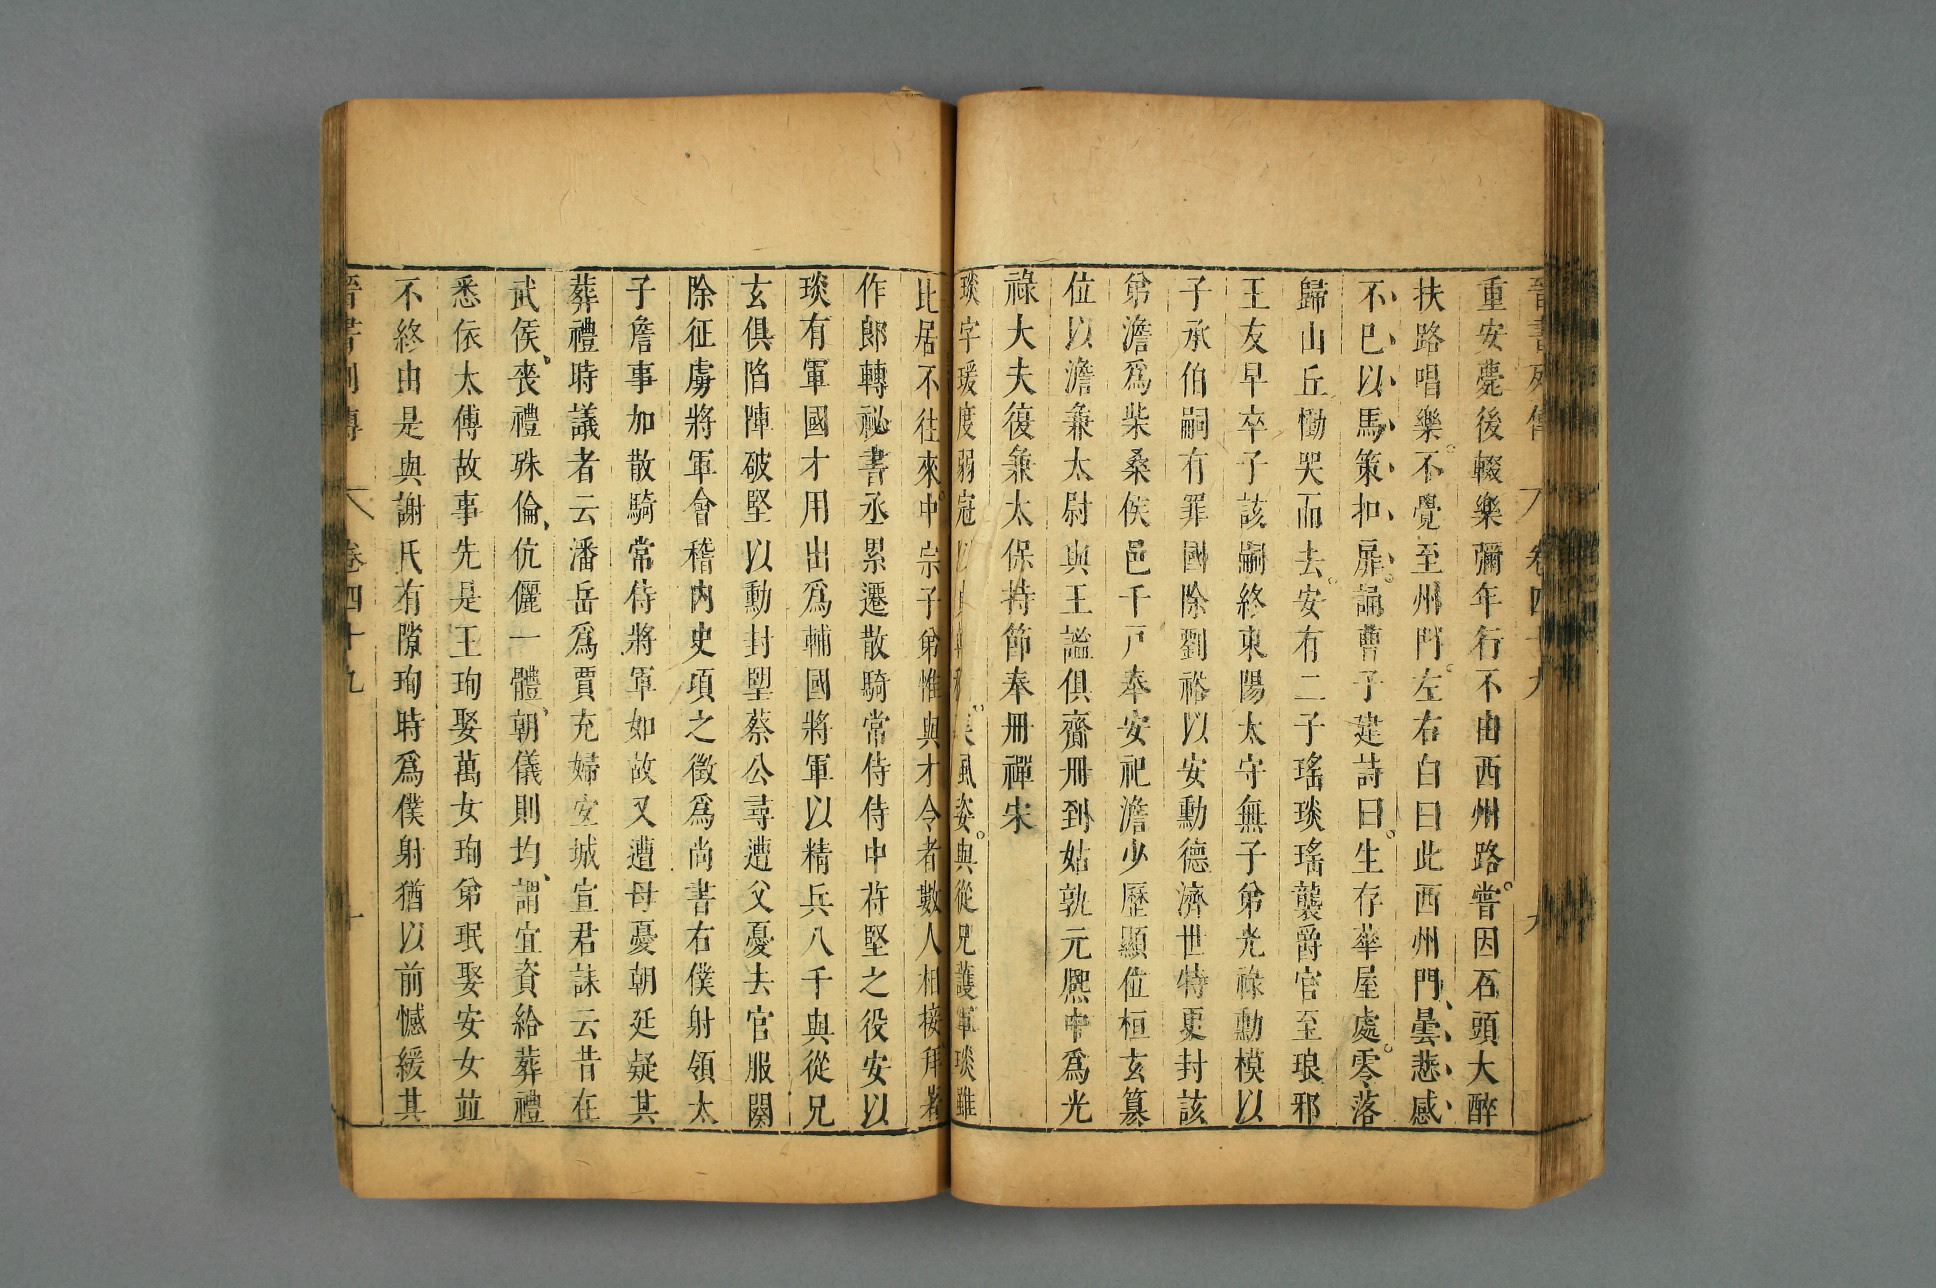 晉書列傳 卷四十九 九
重安薨後輟樂彌年行不由西州路。嘗因石頭大醉
扶路唱樂。不覺至州門。左右白曰此西州門、曇悲感
不已以馬策扣扉。誦曹子建詩曰。生存華屋處。零落
歸山丘慟哭而去。安有二子瑤琰瑤襲爵官至琅邪
王友早卒子該嗣終東陽太守無子弟光祿勳模以
子承伯嗣有罪國除劉裕以安勳德濟世特更封該
弟澹爲柴桑侯邑千戸奉安祀澹少歷顯位桓玄篡
位以澹兼太尉與王謐俱齎冊到姑孰元熙中爲光
祿大夫復兼太保持節奉冊禪宋
琰字瑗度弱冠以貞幹稱。美風姿。與從兄護軍琰雖
比居不往來。中宗子弟惟與才令者數人相接拜著
作郎轉祕書丞累遷散騎常侍侍中苻堅之役安以
琰有軍國才用出爲輔國將軍以精兵八千與從兄
玄俱陷陣破堅以勳封望蔡公尋遭父憂去官服闋
除征虜將軍會稽內史項之徵爲尚書右僕射領太
子詹事加散騎常侍將軍如故又遭母憂朝廷疑其
葬禮時議者云潘岳爲賈充婦宜城宣君誄云昔在
武侯、喪禮殊倫、伉儷一體、朝儀則均、謂宜資給葬禮
悉依太傅故事先是王珣娶萬女珣弟珉娶安女並
不終由是與謝氏有隙珣時爲僕射猶以前憾緩其
晉書列傳 卷四十九 十